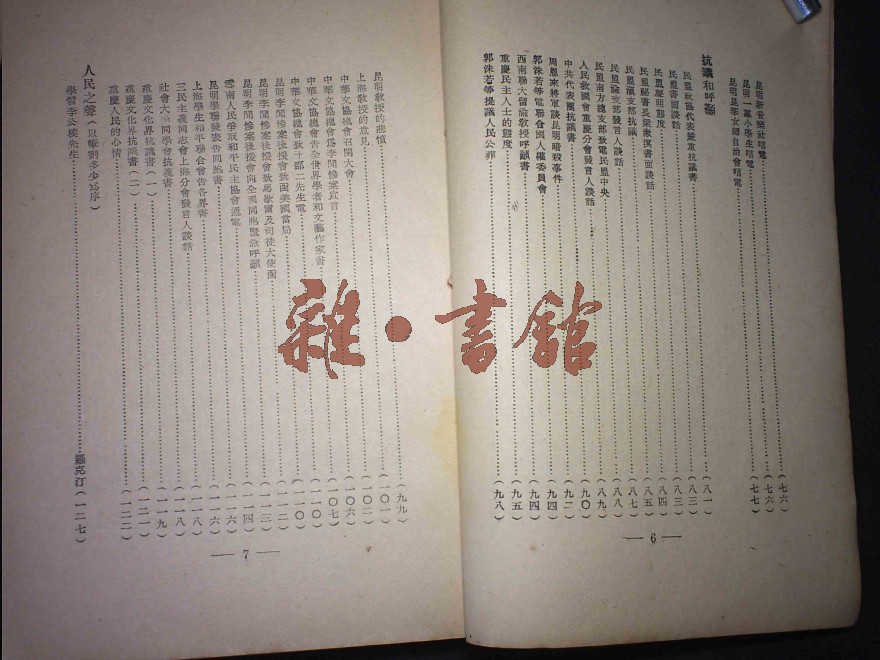 昆明新音樂社唁電……(七六)
昆明一羣小學生唁電……(七六)
昆明昆華女師自治會唁電……(七七)
抗議和呼籲
民盟政協代表嚴重抗議書……(八一)
民盟書面談話……(八三)
民盟嚴明態度……(八四)
民盟秘書長梁漱溟書面談話……(八五)
民盟滬支部抗議……(八七)
民盟渝支部發言人談話……(八八)
民盟南方總支部致電民盟中央……(八九)
人民救國會重慶分會發言人談話……(九〇)
中共代表團抗議書……(九二)
周恩來將軍談昆明暗殺事件……(九四)
郭沫若等電聯合國人權委員會……(九四)
西南聯大留滬教授呼籲書……(九五)
重慶民主人士的態度……(九五)
郭沫若等提議人民公葬……(九八)
— 6 —
昆明教授的悲憤……(九九)
上海教授的意見……(一〇一)
中華文協總會召開大會……(一〇二)
中華文協總會爲李聞慘案宣言……(一〇六)
中華文協總會告全世界學者和文藝作家書……(一〇七)
中華文協總會致于邵二先生電……(一一〇)
昆明李聞慘案後援會致函美國當局……(一一二)
昆明李聞慘案後援會致馬歇爾及司徒大使函……(一一三)
昆明李聞慘案後援會向全國同胞緊急呼籲……(一一四)
雲南人民爭取和平民主協會通電……(一一六)
昆明學聯發表告同胞書……(一一六)
上海學生和平聯合會告各界書……(一一八)
三民主義同志會上海分會發言人談話……(一一八)
社會大學同學會抗議書……(一一九)
重慶文化界抗議書(一)……(一二一)
重慶文化界抗議書(二)……(一二二)
重慶人民的心情……
人民之聲(以筆劃多少爲序)
學習李公樸先生……羅克汀(一二七)
— 7 —
雜·書館